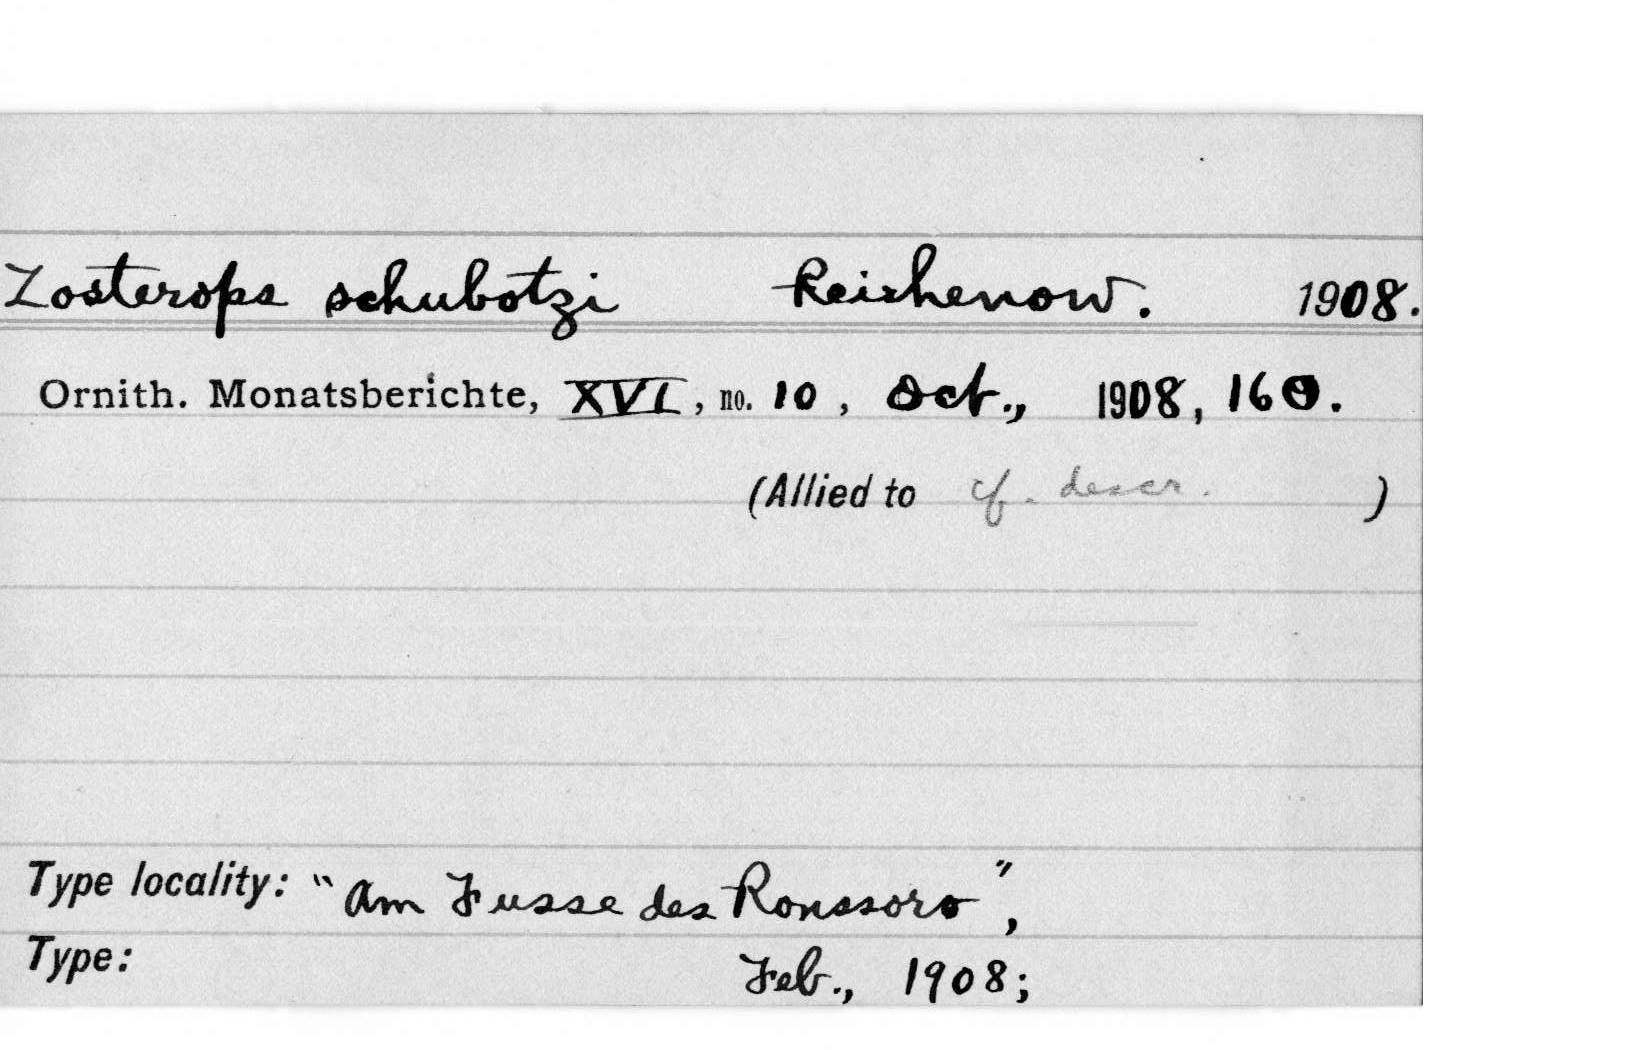 Zosterops schubotzi Reichenow. 1908.
Ornith. Monatsberichte, XVI, no. 10, Oct., 1908, 160.
(Allied to cf. descr. )
Type locality: "Am Fusse des Ronssoro",
Type: Feb., 1908;